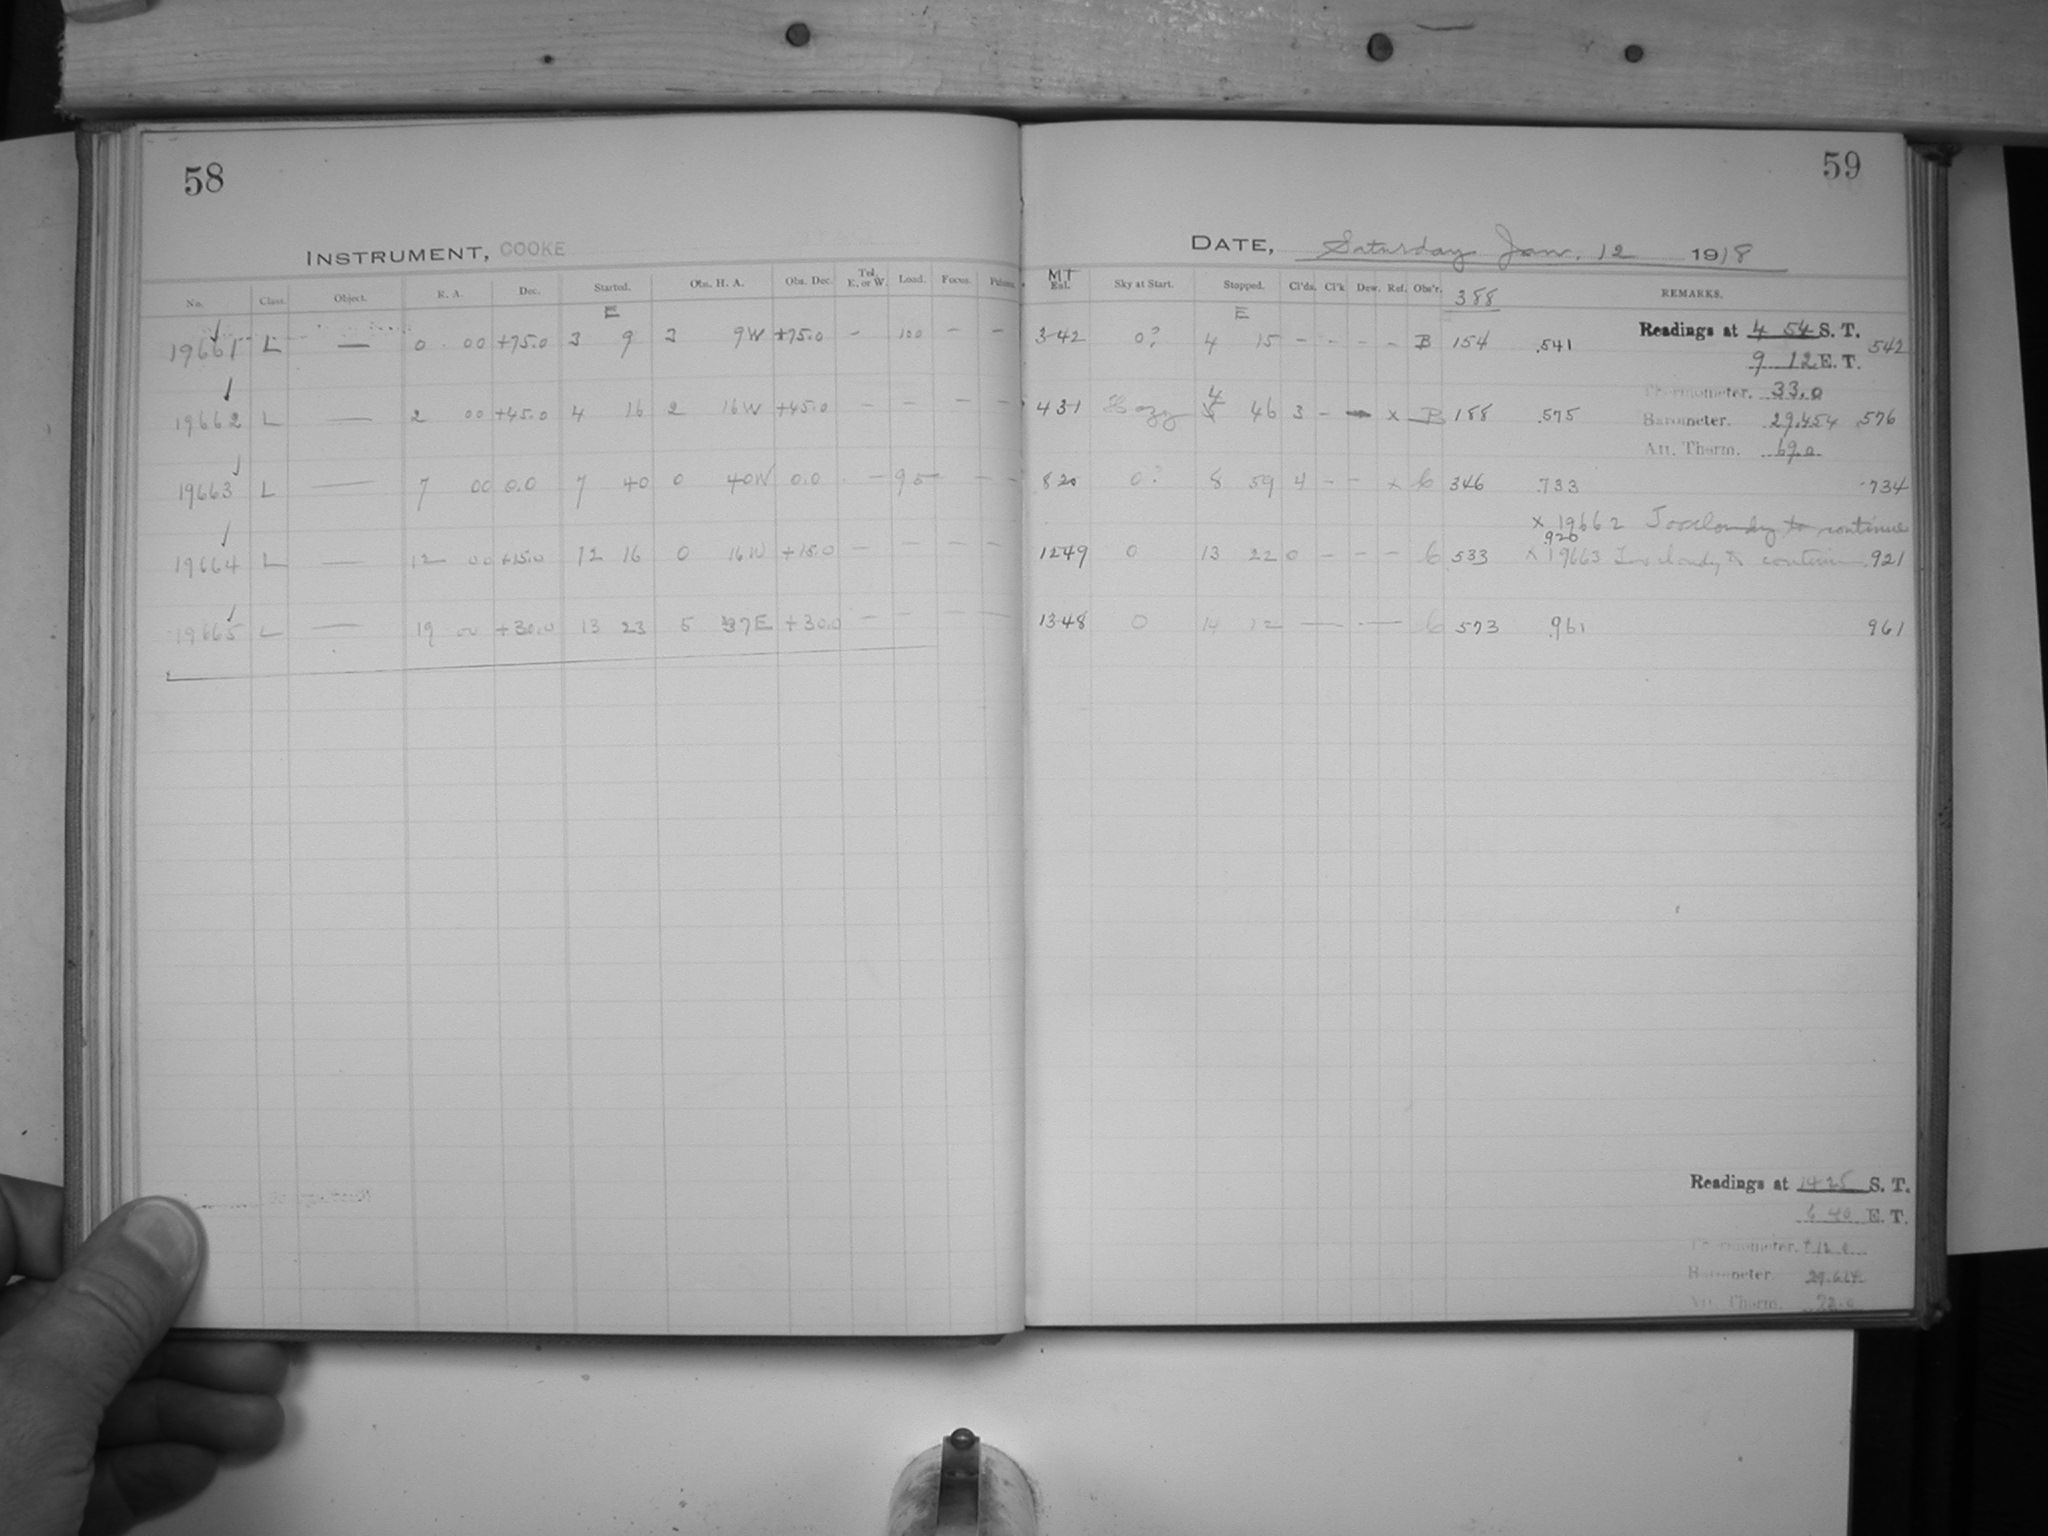 58
INSTRUMENT, COOKE
No. Class. Object. R. A. Dec. Started. Obs. H. A. Obs. Dec. Tel. E. or W. Load. Focus.
E
19661 L — 0 00 +75.0 3 9 3 9W +75.0 — 100 — —
19662 L — 2 00 +45.0 4 16 2 16W +45.0 — — — —
19663 L — 7 00 0.0 7 40 0 40W 0.0 — 95 — —
19664 L — 12 00 +15.0 12 16 0 16W +15.0 — — — —
19665 L — 19 00 +30.0 13 23 5 37E +30.0 — — — —
59
DATE, Saturday Jan. 12 1918
MT
Sky at Start. Stopped. Cl'ds. Cl'k Dew. Ref. Obs'r. 388 REMARKS.
E
3 42 0? 4 15 — - - - B 154 .541 542
Readings at 4 54 S. T.
9 12 E. T.
Thermometer. 33.0
Barometer. 29.454
Att. Therm. 69.0
4 31 Hazy 4 46 3 — — x B 188 .575 .576
8 20 0? 8 59 4 — — x 6 346 .733 .734
x 19662 Too cloudy to continue
12 49 0 13 22 0 — — — 6 533 .920 .921
x 19663 Too cloudy to continue
13 48 0 14 12 — — 6 573 .961 961
Readings at 14 25 S. T.
6 40 E. T.
Thermometer.
Barometer. 29.614
Att. Therm. 72.0